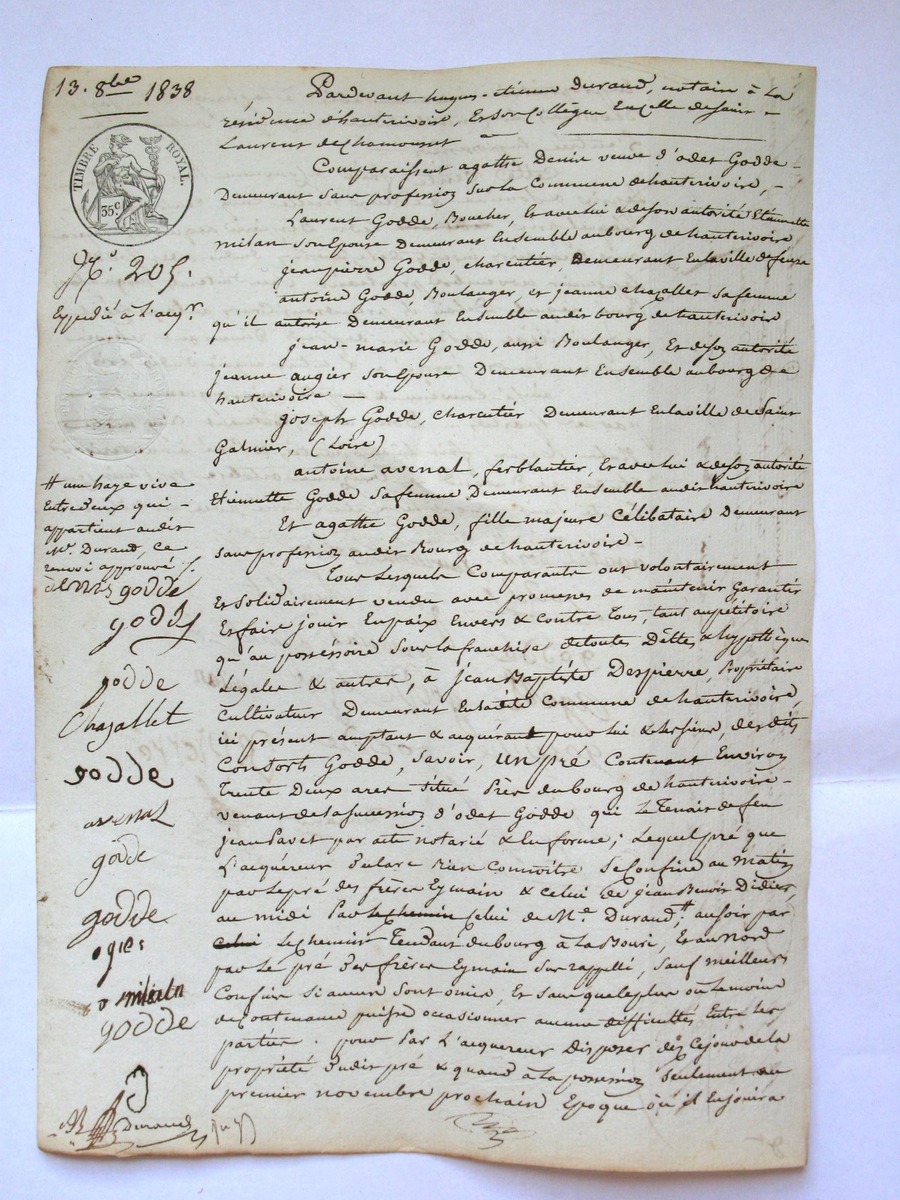 13. 8bre 1838
TIMBRE ROYAL.
35c
No. 205.
Expédié à l'acqr.
Pardevant hugues-etienne durand, notaire à La
résidence d'hauterivoire, Et son Collègue En celle de Saint
Laurent de Chamousset
Comparaissent agathe Denis veuve d'odet Godde
Demeurant sans profession sur la Commune de hauterivoire,
Laurent Godde, Boucher, Et avec lui & de son autorité Etiennette
milan son Epouse Demeurant Ensemble au bourg de hauterivoire
jean pierre Godde, charcutier, Demeurant En la ville de feurs
antoine Godde, Boulanger, et jeanne chazallet sa femme
qu'il autorise Demeurant Ensemble audit bourg de hauterivoire
jean-marie Godde, aussi Boulanger, Et de son autorité
jeanne augier son Epouse Demeurant Ensemble au bourg de
hauterivoire
joseph Godde, charcutier Demeurant En la ville de Saint
Galmier, (Loire)
antoine avenal, ferblantier, Et avec lui & de son autorité
Etiennette Godde sa femme Demeurant Ensemble audit hauterivoire
Et agathe Godde, fille majeure Célibataire Demeurant
sans profession audit Bourg de hauterivoire
Tous Lesquels Comparants ont volontairement
Et Solidairement vendu avec promesses de maintenir Garantir
Et faire jouir En paix Envers & Contre Tous, tant au pétitoire
qu'au possessoire sous la franchise de toutes Dêttes & hypothèques
Légales & autres, à jean Baptiste Despierre, Propriétaire
Cultivateur Demeurant En ladite Commune de hauterivoire
ici présent acceptant & acquérant pour lui & les siens, des dits
Consorts Godde, Savoir, un pré Contenant Environ
Trente Deux ares situé Près du bourg de hauterivoire
venant de la succession d'odet Godde qui Le Tenait de feu
jean Pavet par acte notarié & En forme; Lequel pré que
L'acquéreur Déclare Bien Connoître Se Confine au matin
par Le pré des frères Eymain & Celui de jean Benoit Didier,
au midi Par le chemin Celui de Mr. Durand # au soir par
celui Le Chemin Tendant du bourg à La Bouri, Et au Nord
par Le pré des frères Eymain Sus rappellé, Sauf meilleurs
Confins Si aucuns Sont omis, Et Sans que le plus ou Le moins
de Contenance puisse occasionner aucune difficultés Entre les
parties. pour Par L'acquereur Disposer dès Ce jour de la
propriété Dudit pré & quand à la possession Seulement au
premier novembre prochain Epoque où il En jouira
# une haye vive
Entredeux qui
appartient audit
Mr. Durand, Ce
renvoi approuvé
denis godde
godde
godde
Chazallet
godde
avenal
godde
godde
ogier
milan
godde
Durand